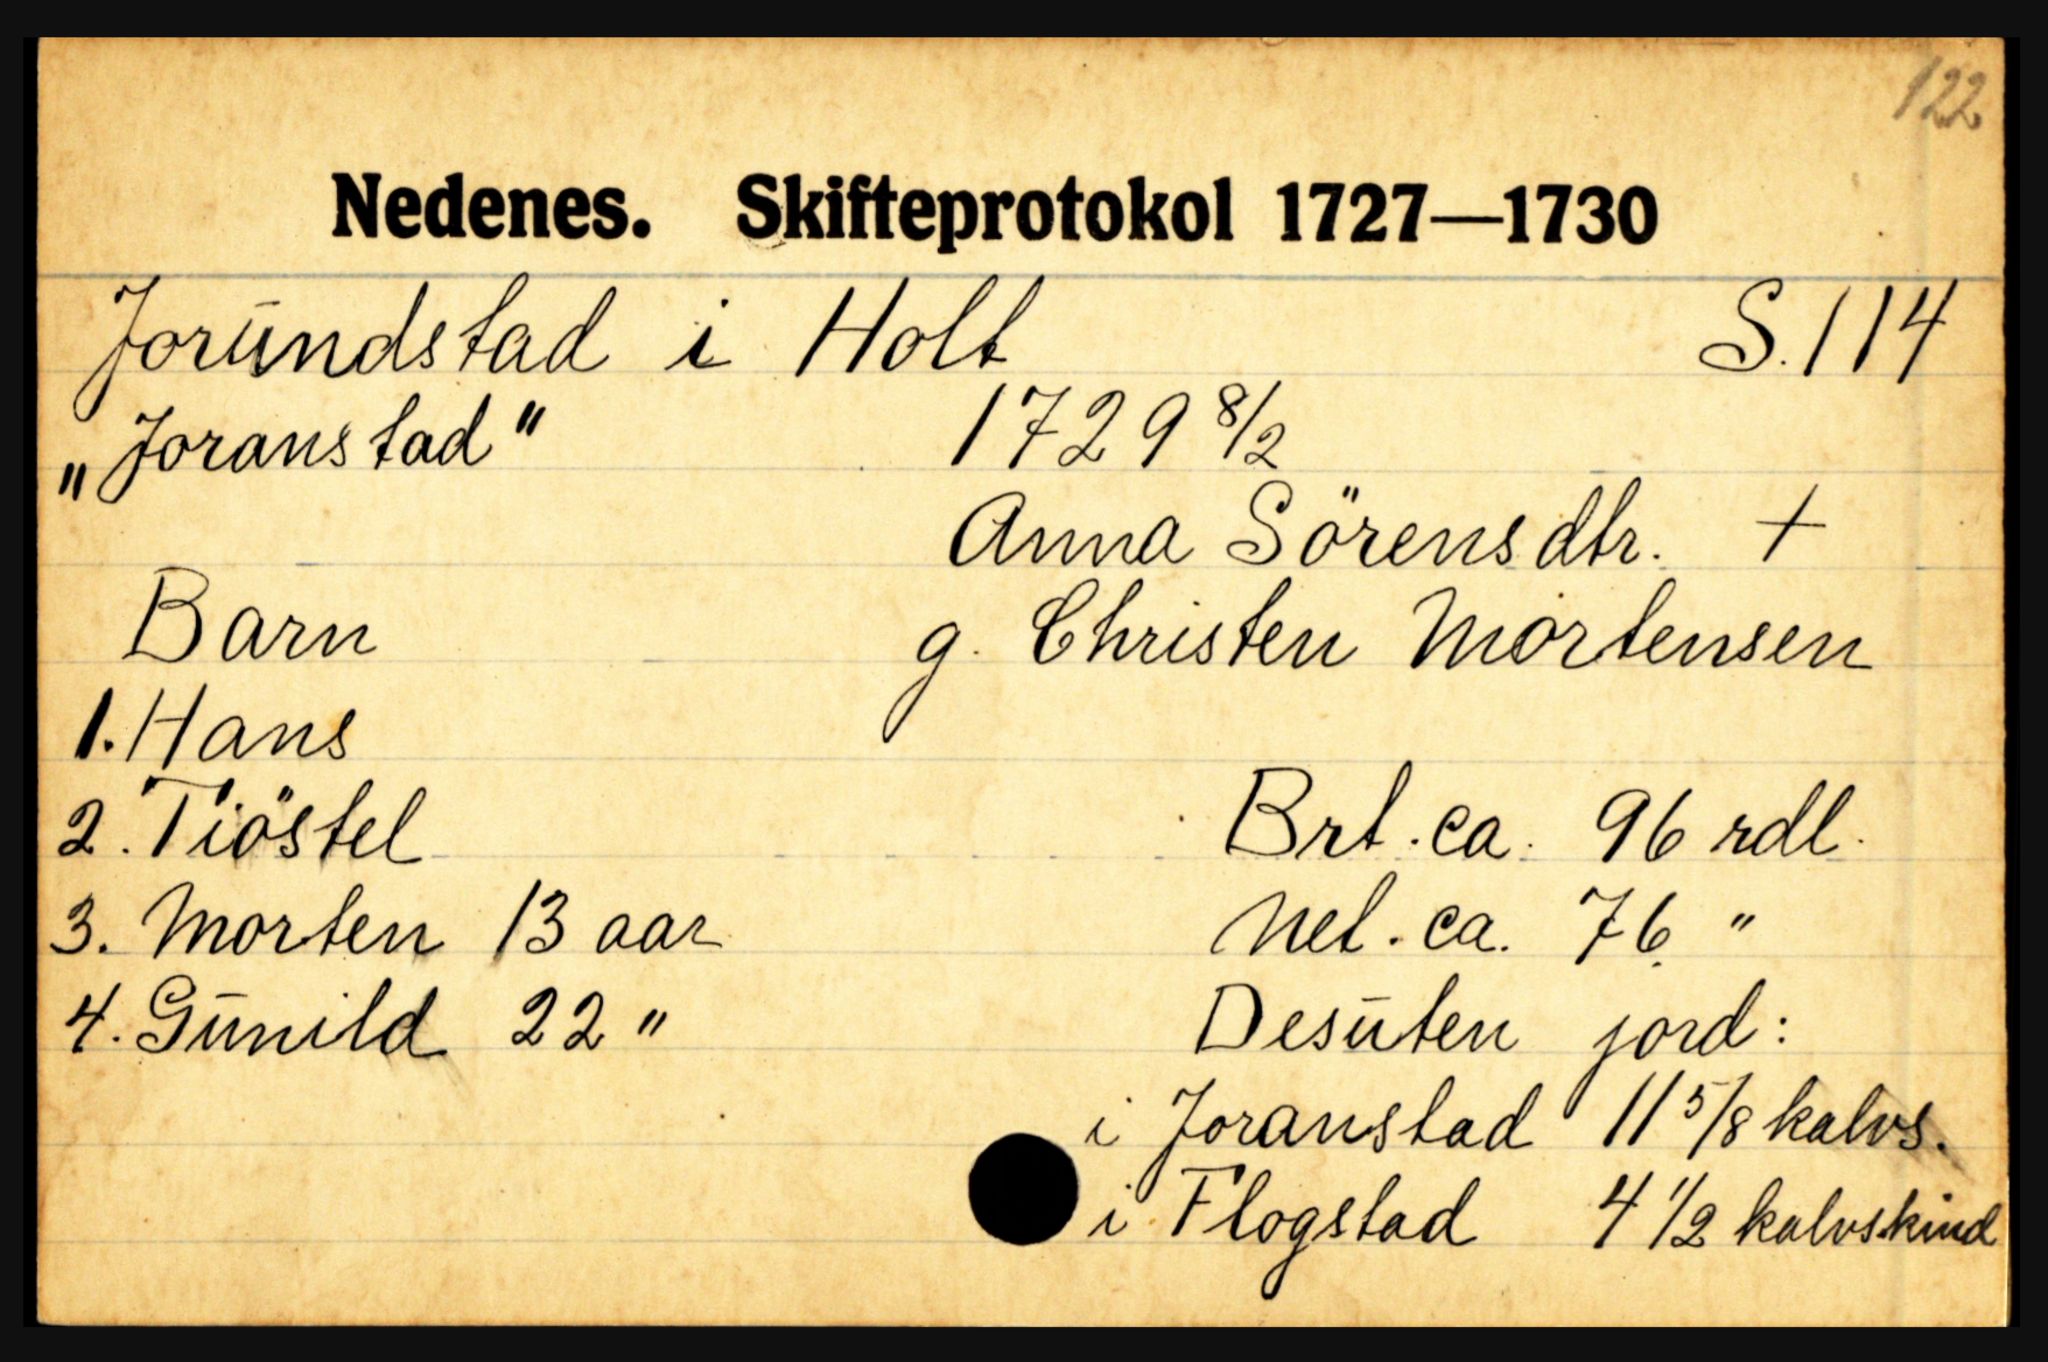 122
Nedenes. Skifteprotokol 1727—1730
Jorŭndstad i Holt S. 114
„Joranstad" 1729 8/2
Anna Sörensdtr. +
Barn g. Christen Mortensen
1. Hans
2. Tiöstel Brt. ca. 96 rdl.
3. Morten 13 aar Net. ca. 76 "
4. Gūnild 22 " Desūten jord:
i Joranstad 11 5/8 kalvs.
i Flogstad 4 1/2 kalvskind